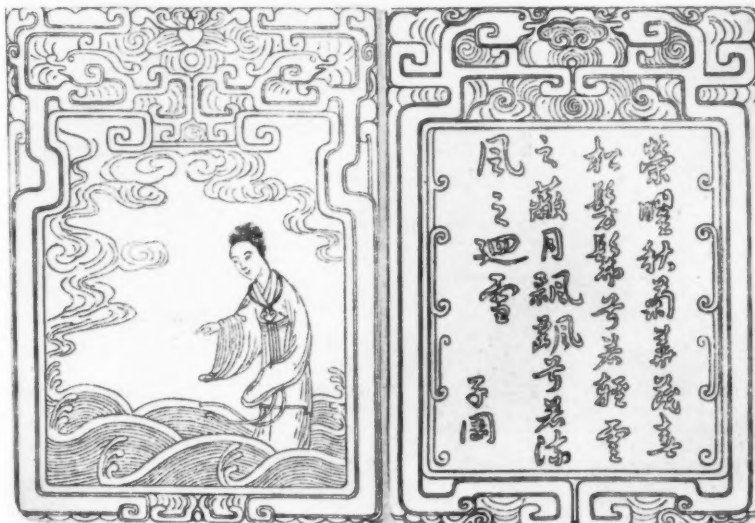 榮曜秋菊華茂春
松髣髴兮若輕雲
之蔽月飄颻兮若流
風之迴雪
子岡